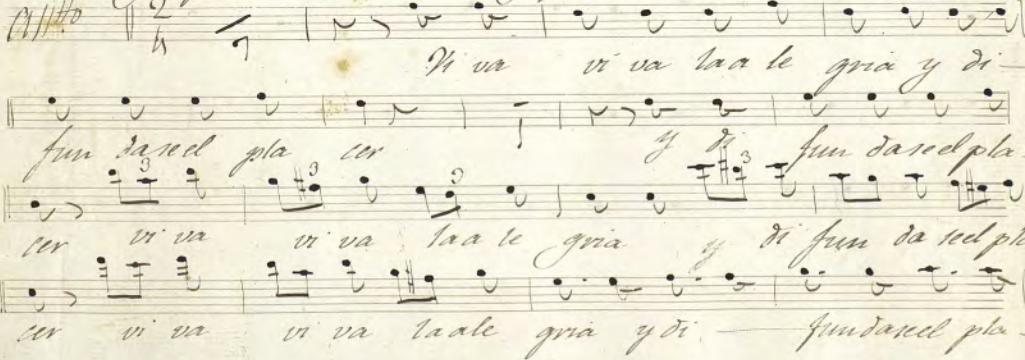 All.tto 2 4 7
Vi va vi va laa le gria y di —
fun daseel pla cer 1 y di fun daseel pla-
3 3 3 3
cer vi va vi va laa le gria y di fun da seel pla
cer vi va vi va laale gria y di — fundaseel pla-